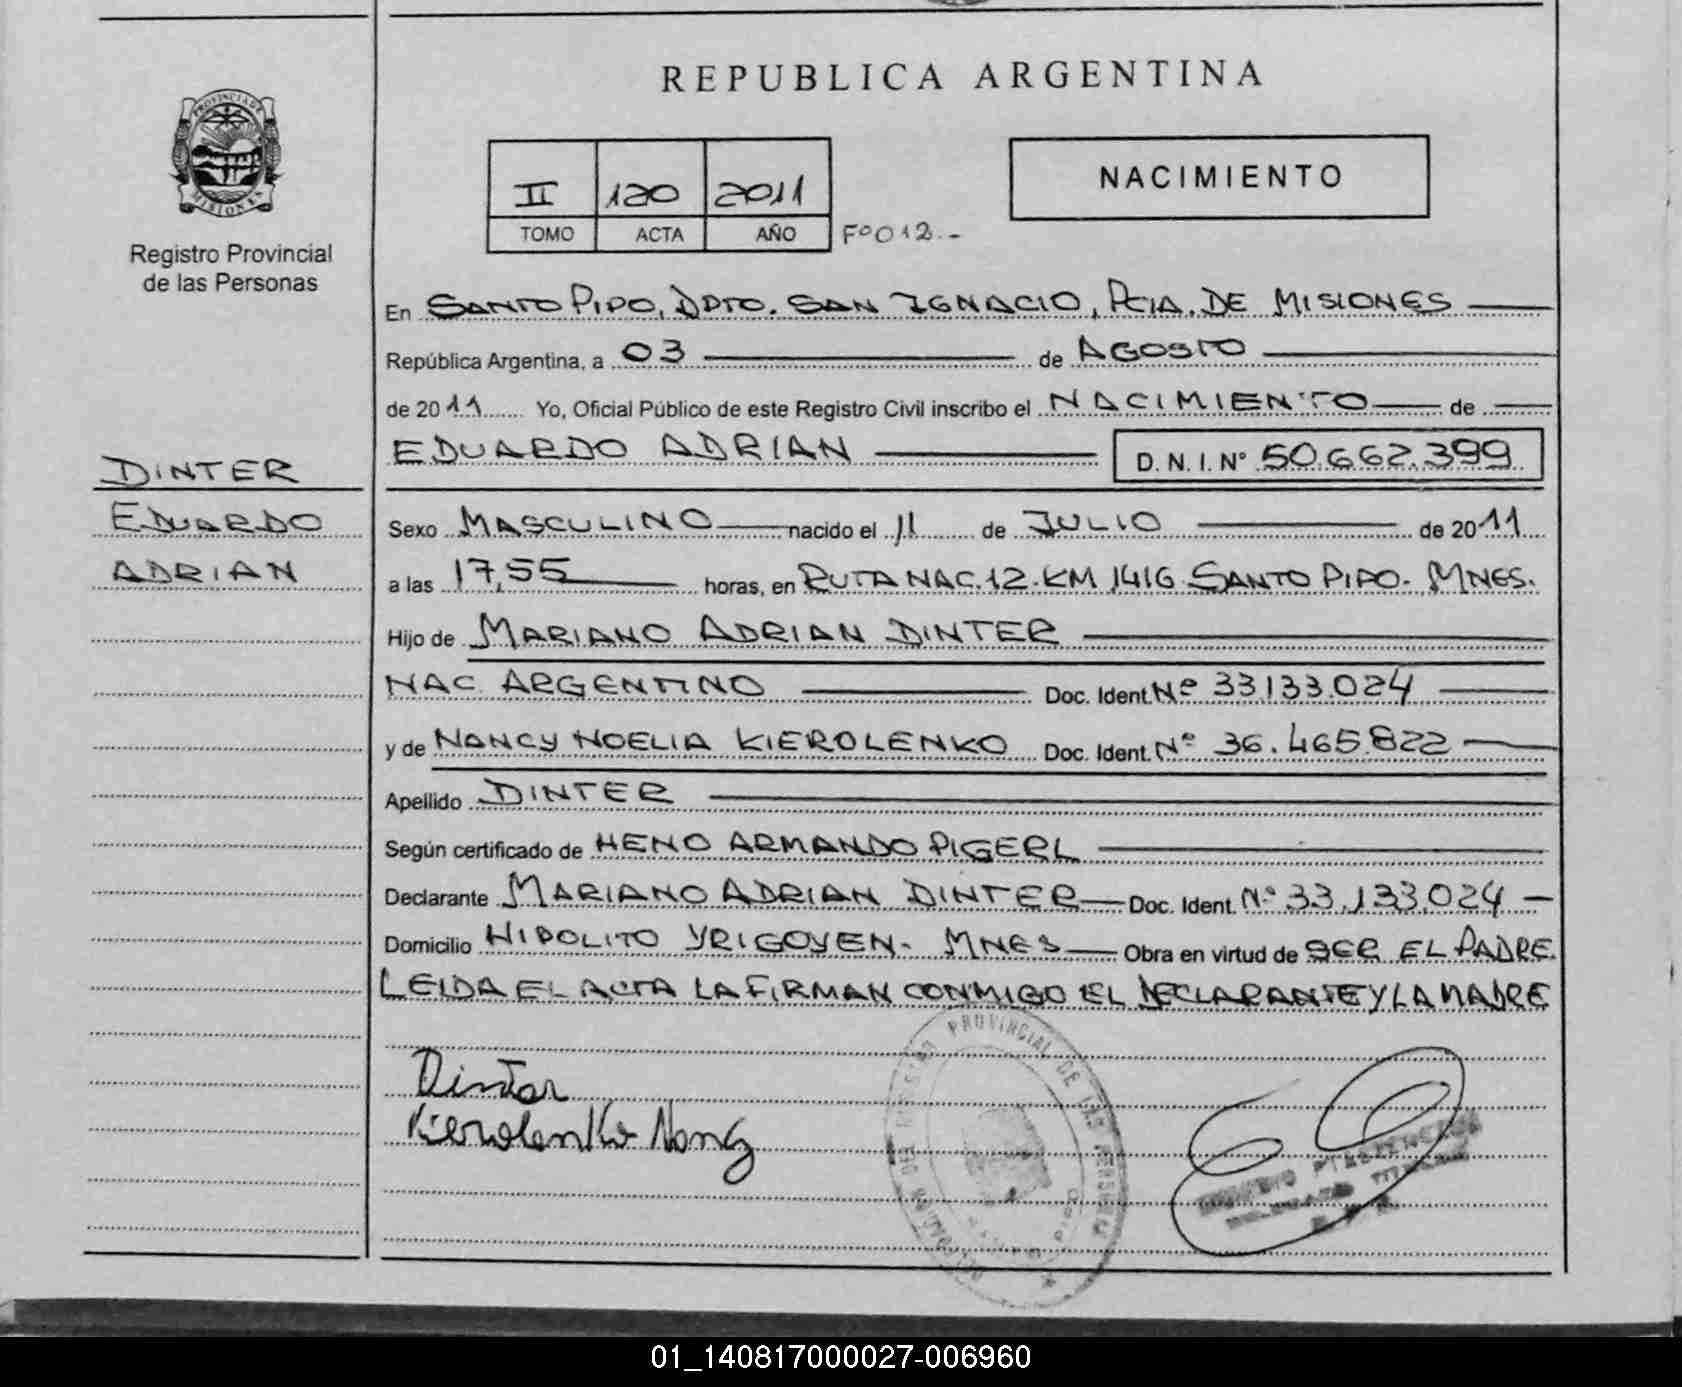 REPUBLICA ARGENTINA
PROVINCIA DE
MISIONES
Registro Provincial
de las Personas
II 120 2011
TOMO ACTA AÑO Fº012.-
NACIMIENTO
En SANTO PIPO, DPTO. SAN IGNACIO, PCIA. DE MISIONES
República Argentina, a 03 de AGOSTO
de 2011 Yo, Oficial Público de este Registro Civil inscribo el NACIMIENTO de
EDUARDO ADRIAN D.N.I. Nº 50.662.399
DINTER
EDUARDO
ADRIAN
Sexo MASCULINO nacido el 11 de JULIO de 2011
a las 17,55 horas, en RUTA NAC. 12. KM 1416 SANTO PIPO. MNES.
Hijo de MARIANO ADRIAN DINTER
NAC. ARGENTINO Doc. Ident. Nº 33.133.024
y de NANCY NOELIA KIEROLENKO Doc. Ident. Nº 36.465.822
Apellido DINTER
Según certificado de HENO ARMANDO PIGERL
Declarante MARIANO ADRIAN DINTER Doc. Ident. Nº 33.133.024
Domicilio HIPOLITO YRIGOYEN. MNES Obra en virtud de SER EL PADRE.
LEIDA EL ACTA LA FIRMAN CONMIGO EL DECLARANTE Y LA MADRE
Dinter
Kierolenko Nancy
PROVINCIAL DE LAS PERSONAS
01_140817000027-006960